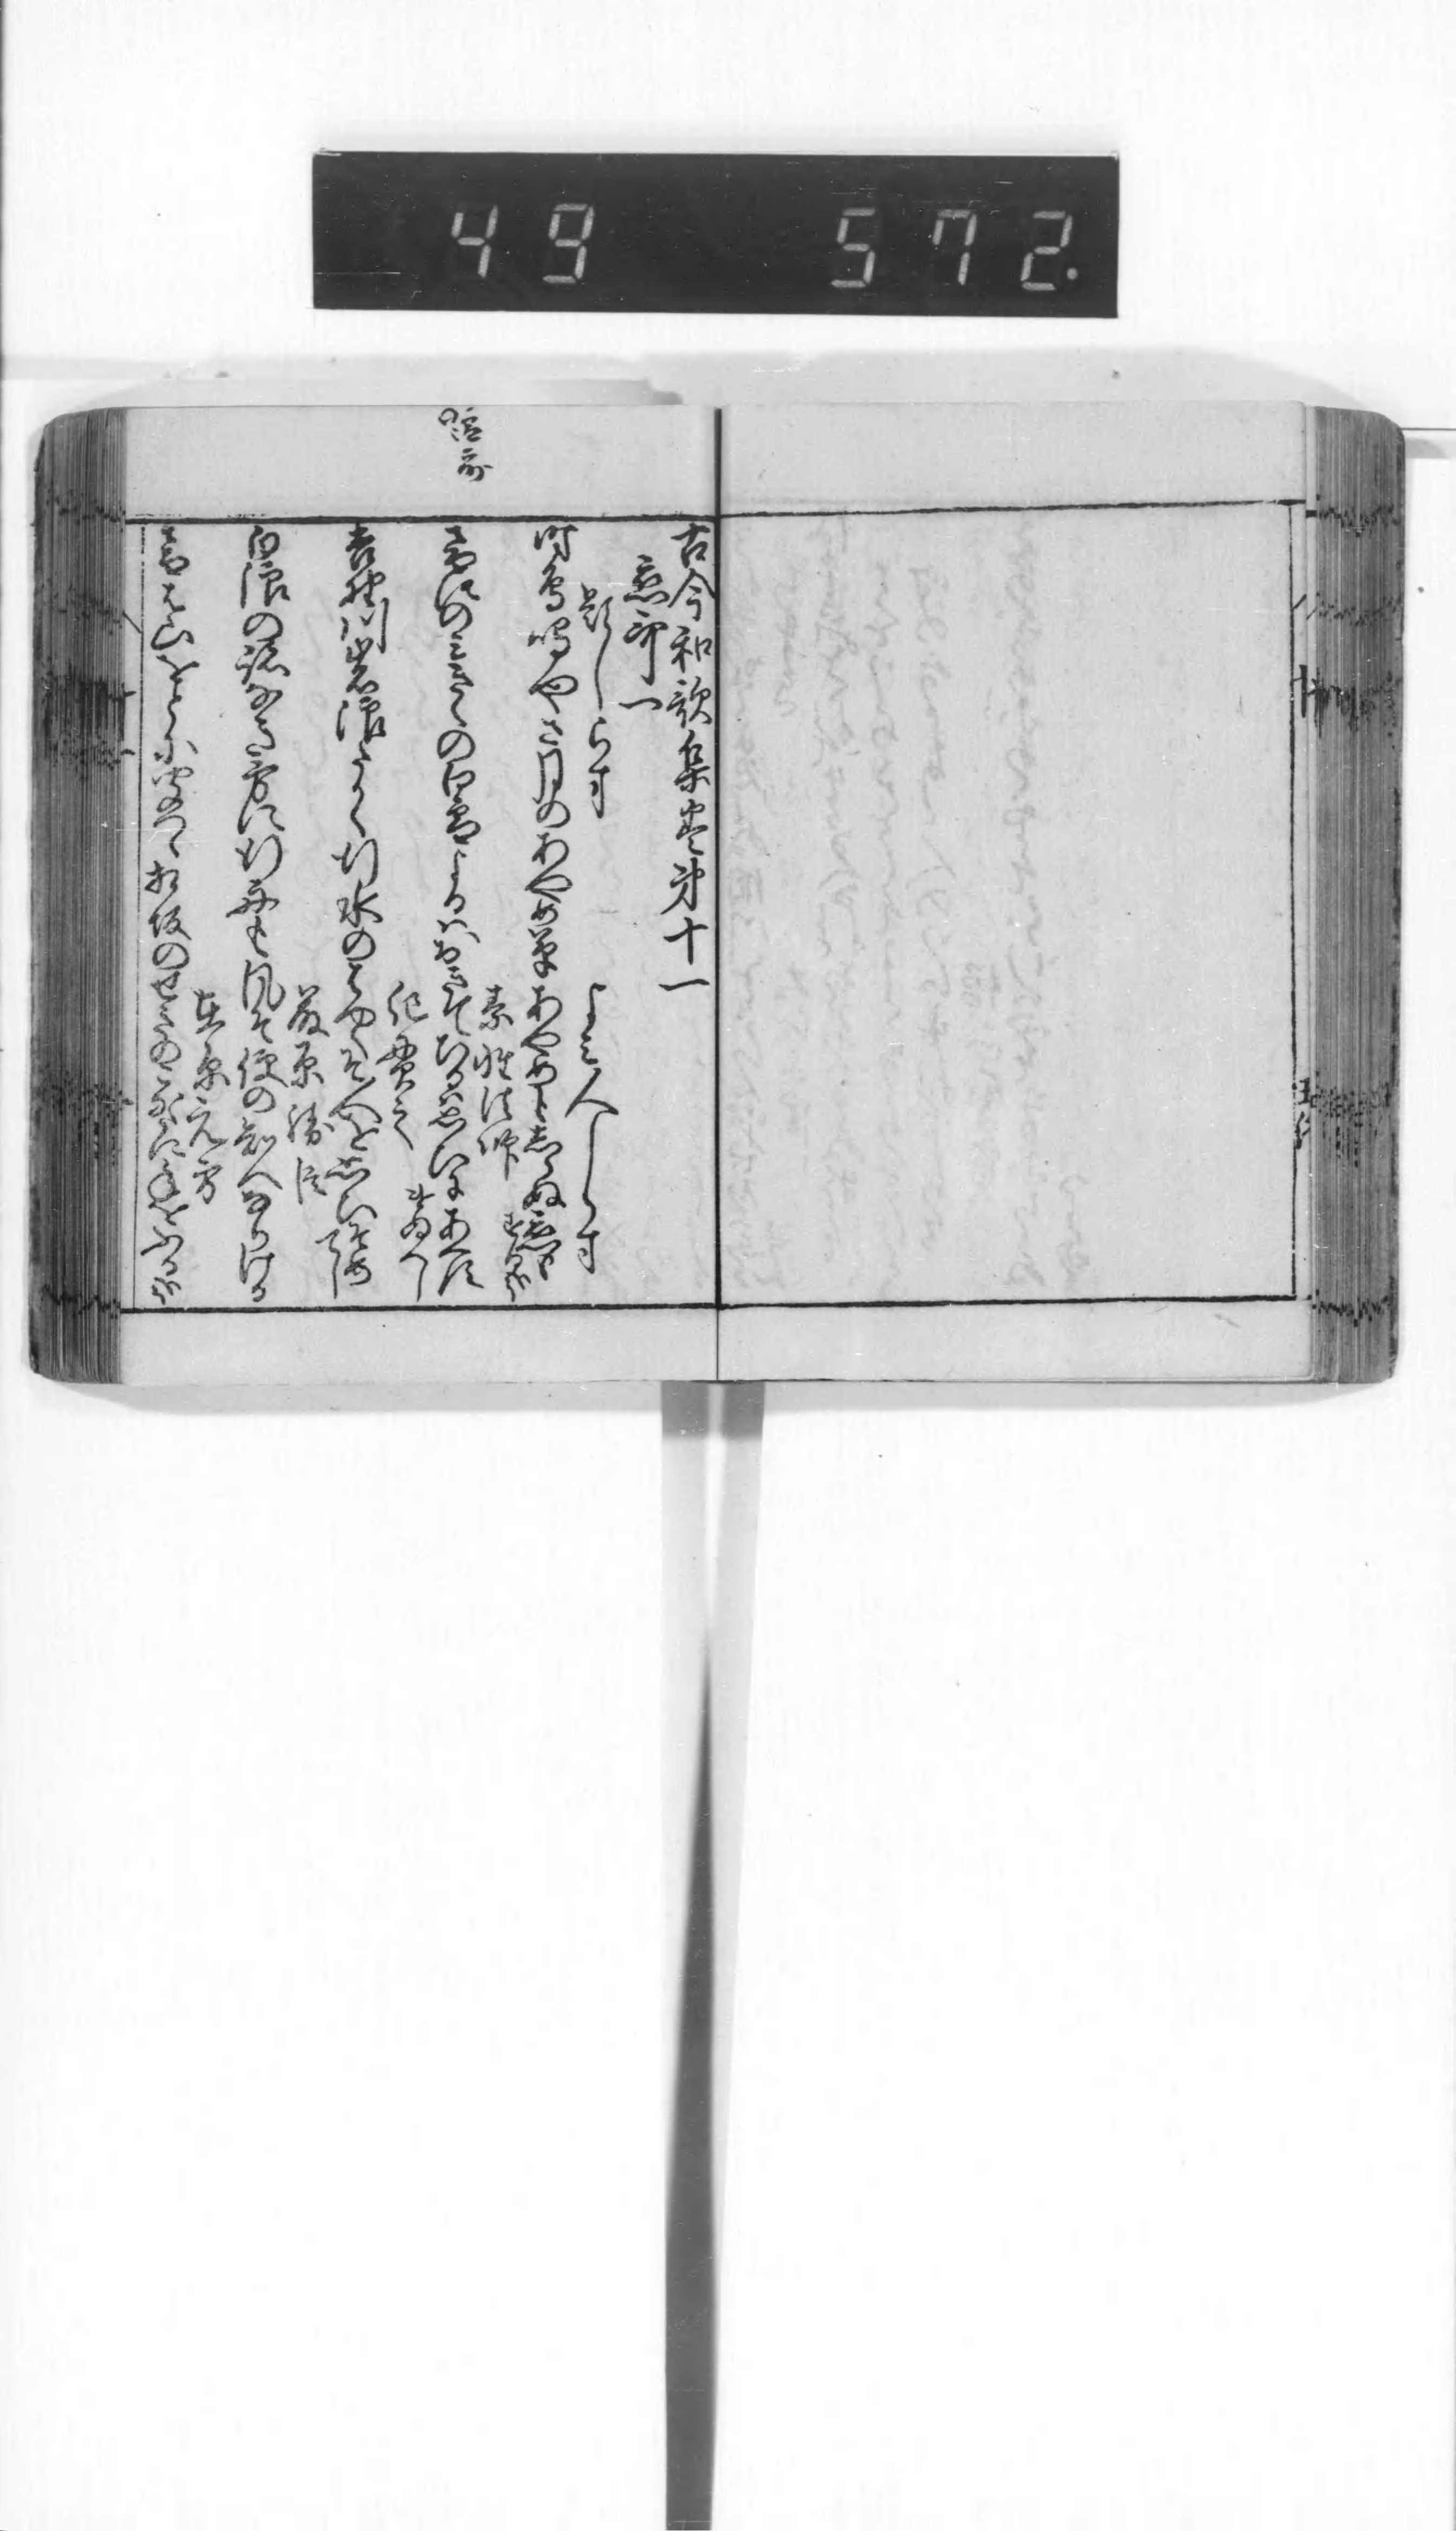 49 572.
古今和歌集巻第十一
恋哥一
題しらす
よみ人しらす
時鳥鳴やさ月のあやめ草あやめもしらぬ恋もする哉
素性法師
音にのみきくの白露よるはおきてひるは思ひにあへす
けぬへし
紀貫之
吉野川岩浪たかく行水のはやくそ人を思ひそめ
てし
藤原勝臣
白浪の跡なき方に行舟も風そ便のしるへなりける
在原元方
音羽山をとに聞つゝ相坂のせきのこなたに年をふる哉